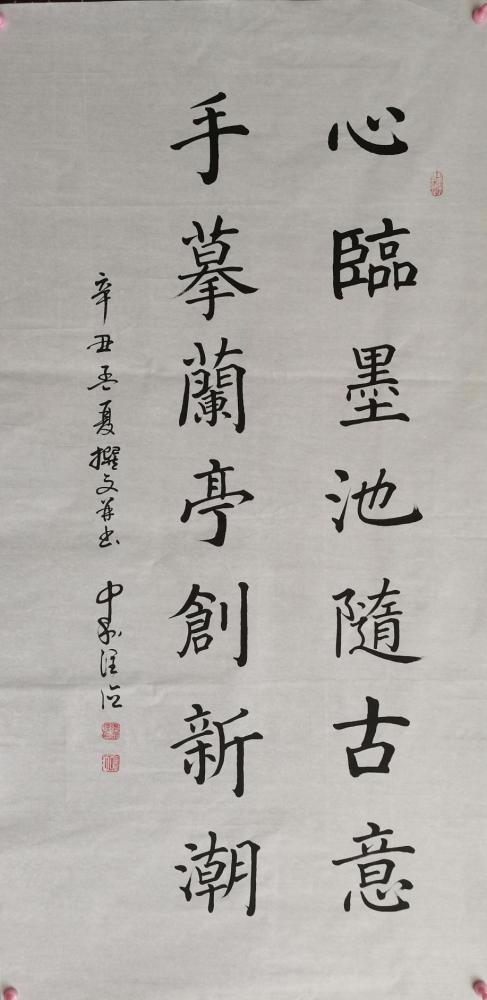 心臨墨池隨古意
手摹蘭亭創新潮
辛丑孟夏撰文并书